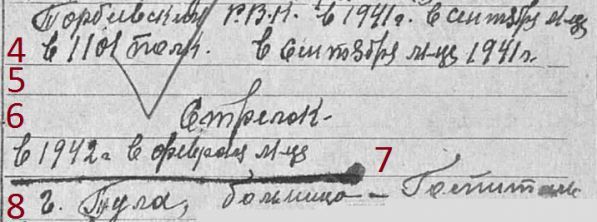 Горбевским Р.В.К. в 1941 г. в сентябр м-це
4 в 1101 полк. в Сентября м-це 1941 г.
5
6 Стрелок-
в 1942 г в феврал м-це
7
8 г. Тула, больница - Гоститаль